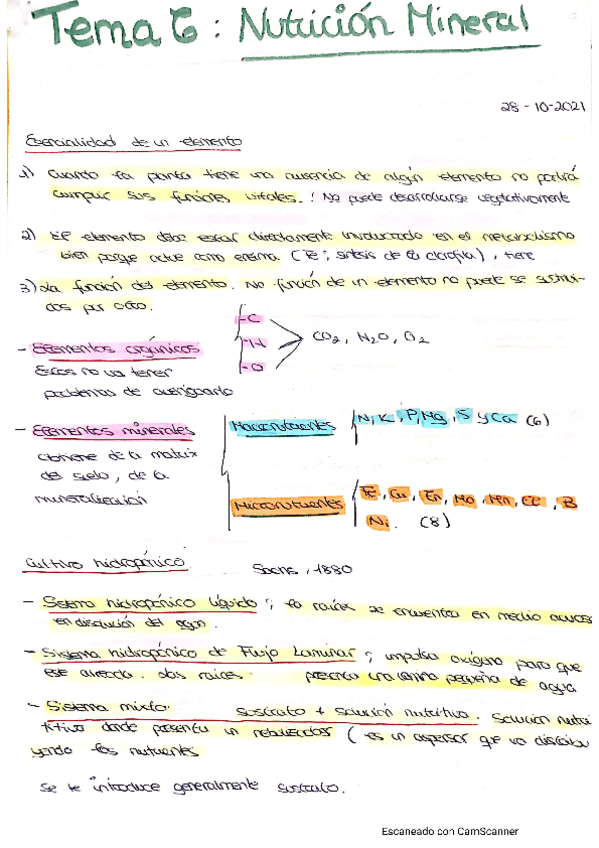 Tema 6 : Nutrición Mineral
28-10-2021
Esencialidad de un elemento
1) Cuando la planta tiene una ausencia de algún elemento no podrá
cumplir sus funciones vitales. ! No puede desarrollarse vegetativamente
2) El elemento debe estar directamente involucrado en el metabolismo
bien porque actue como enzima (Fe; síntesis de la clorofila), tiene
3) La función del elemento. No función de un elemento no puede se sustitui-
dos por otro.
- Elementos orgánicos
Estos no va tener
problemas de averiguarlo
-C
-H
-O
CO2, H2O, O2
- Elementos minerales
obtiene de la matriz
del suelo, de la
mineralización
Macronutrientes
N, K, P, Mg, S y Ca (6)
Micronutrientes
Fe, Cu, Zn, Mo, Mn, Cl, B
Ni. (8)
Cultivo hidropónico
Sachs, 1880
- Sistema hidropónico líquido; la raíces se encuentra en medio acuoso
en disolución del agua.
- Sistema hidropónico de Flujo Laminar; impulsa oxígeno para que
ese alrededor. las raíces. presenta una lámina pequeña de agua
- Sistema mixto. sustrato + solución nutritiva. Solución nutri
titivo donde presenta un (es un aspersor que va distribu
yendo los nutrientes
Se le introduce generalmente sustrato.
Escaneado con CamScanner